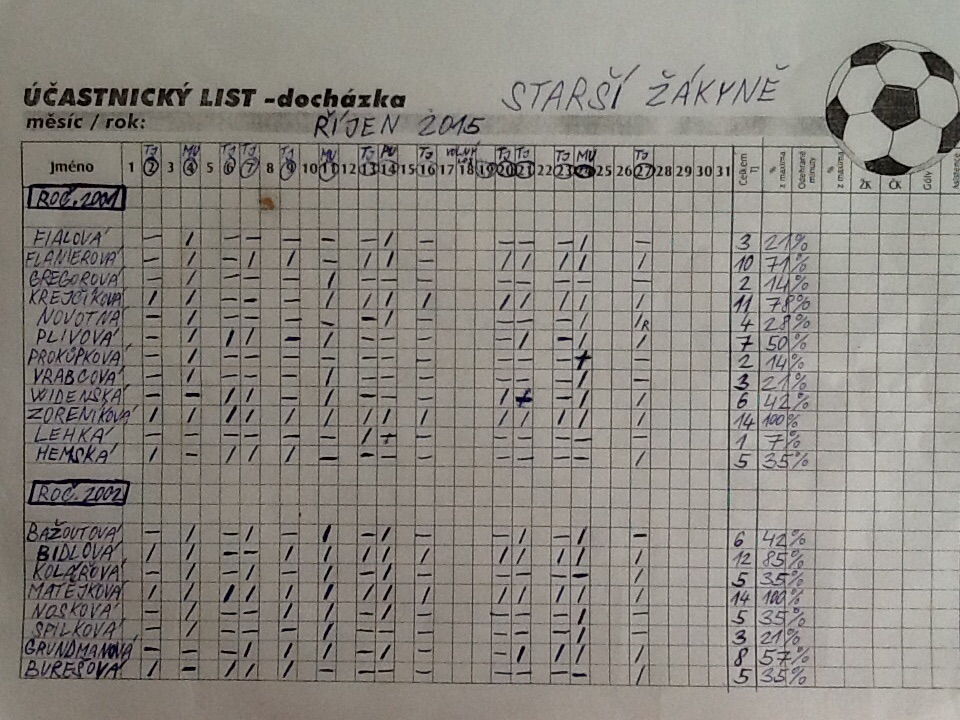 STARŠÍ ŽÁKYNĚ
ÚČASTNICKÝ LIST -docházka
měsíc / rok: ŘÍJEN 2015
TJ MU TJ TJ TJ MU TJ PU TJ TJ TJ TJ MU TJ
Jméno 1 2 3 4 5 6 7 8 9 10 11 12 13 14 15 16 17 18 19 20 21 22 23 24 25 26 27 28 29 30 31 Celkem TJ % z maxima Odehrané minuty % z maxima ŽK ČK Góly Asistence
ROČ. 2001
FIALOVÁ — / — — — — — / — — — — / — 3 21%
FLANIEROVÁ 10 71%
GREGOROVÁ 2 14%
KREJČÍKOVÁ 11 78%
NOVOTNÁ 4 28%
PLIVOVÁ 7 50%
PROKŮPKOVÁ 2 14%
VRABCOVÁ 3 21%
WIDENSKÁ 6 42%
ZORENÍKOVÁ / / / / / / / / / / / / / / 14 100%
LEHKÁ 1 7%
HEMSKÁ 5 35%
ROČ. 2002
BAŽOUTOVÁ 6 42%
BIDLOVÁ 12 85%
KOLÁŘOVÁ 5 35%
MATĚJKOVÁ / / / / / / / / / / / / / / 14 100%
NOSKOVÁ 5 35%
ŠPILKOVÁ 3 21%
GRUNDMANOVÁ 8 57%
BUREŠOVÁ 5 35%